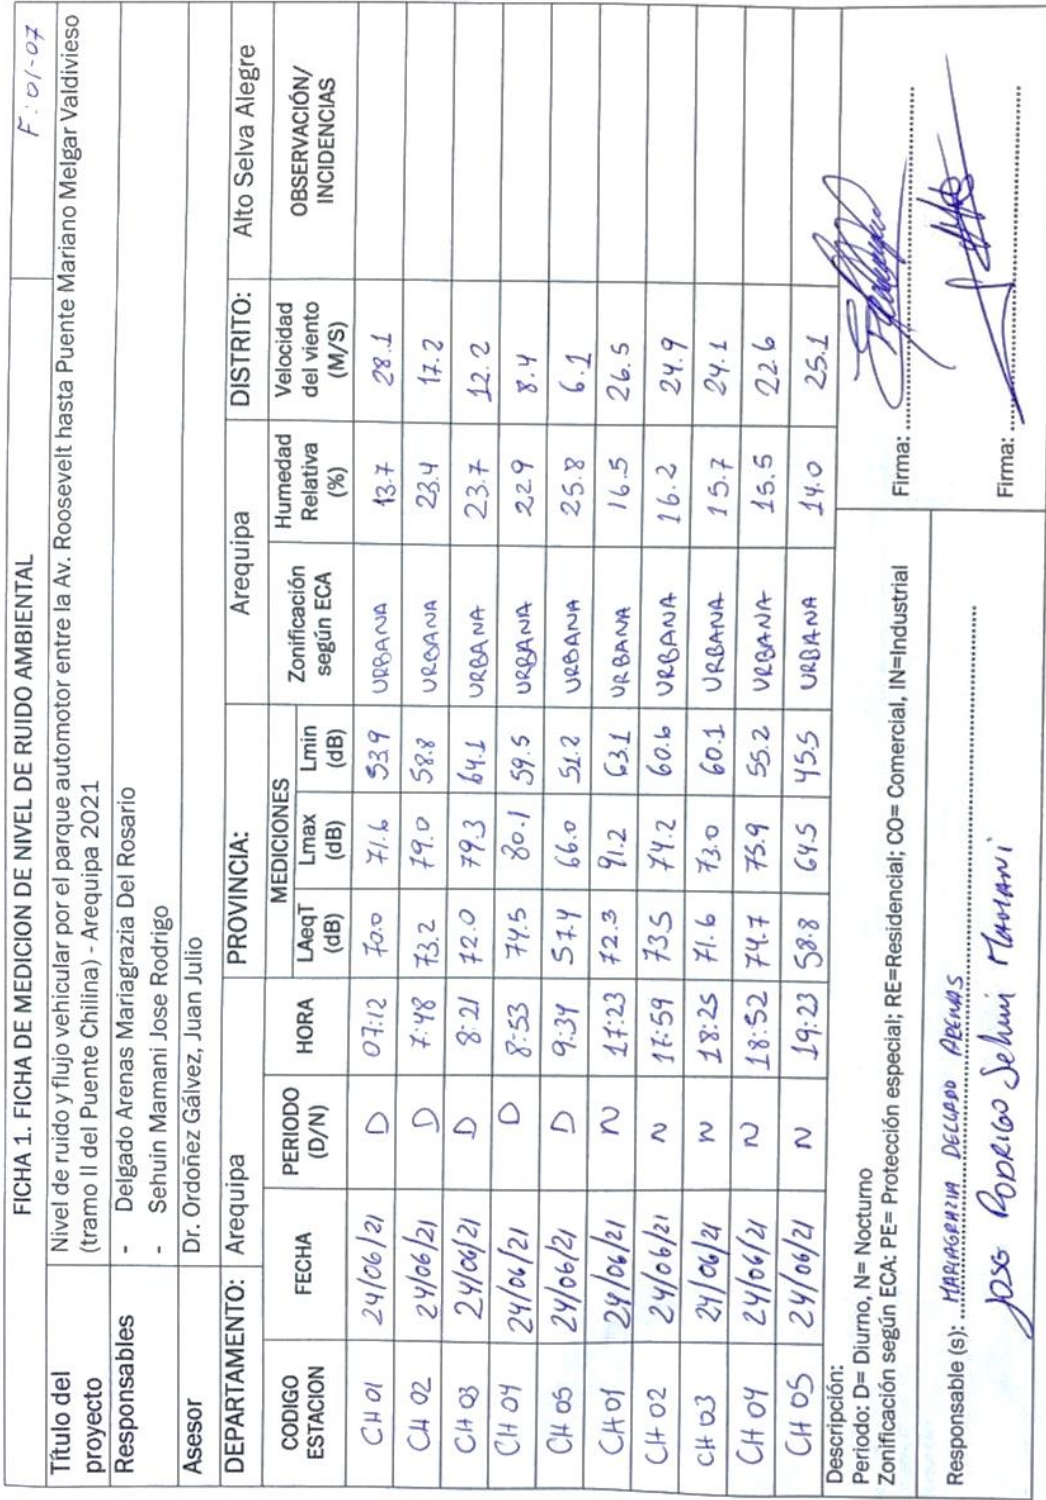 FICHA 1. FICHA DE MEDICION DE NIVEL DE RUIDO AMBIENTAL F: 01-07
Título del proyecto Nivel de ruido y flujo vehicular por el parque automotor entre la Av. Roosevelt hasta Puente Mariano Melgar Valdivieso
(tramo II del Puente Chilina) - Arequipa 2021
Responsables - Delgado Arenas Mariagrazia Del Rosario
- Sehuin Mamani Jose Rodrigo
Asesor Dr. Ordoñez Gálvez, Juan Julio
DEPARTAMENTO: Arequipa PROVINCIA: Arequipa DISTRITO: Alto Selva Alegre
CODIGO ESTACION FECHA PERIODO (D/N) HORA MEDICIONES LAeqT (dB) Lmax (dB) Lmin (dB) Zonificación según ECA Humedad Relativa (%) Velocidad del viento (M/S) OBSERVACIÓN/ INCIDENCIAS
CH 01 24/06/21 D 07:12 70.0 71.6 53.9 URBANA 13.7 28.1
CH 02 24/06/21 D 7:48 73.2 79.0 58.8 URBANA 23.4 17.2
CH 03 24/06/21 D 8:21 72.0 79.3 64.1 URBANA 23.7 12.2
CH 04 24/06/21 D 8:53 74.5 80.1 59.5 URBANA 22.9 8.4
CH 05 24/06/21 D 9:34 57.4 66.0 51.2 URBANA 25.8 6.1
CH 01 24/06/21 N 17:23 72.3 91.2 63.1 URBANA 16.5 26.5
CH 02 24/06/21 N 17:59 73.5 74.2 60.6 URBANA 16.2 24.9
CH 03 24/06/21 N 18:25 71.6 73.0 60.1 URBANA 15.7 24.1
CH 04 24/06/21 N 18:52 74.7 75.9 55.2 URBANA 15.5 22.6
CH 05 24/06/21 N 19:23 58.8 64.5 45.5 URBANA 14.0 25.1
Descripción:
Periodo: D= Diurno, N= Nocturno
Zonificación según ECA: PE= Protección especial; RE=Residencial; CO= Comercial, IN=Industrial
Responsable (s): MARIAGRAZIA DELGADO ARENAS
Jose Rodrigo Sehuin Mamani
Firma:
Firma: